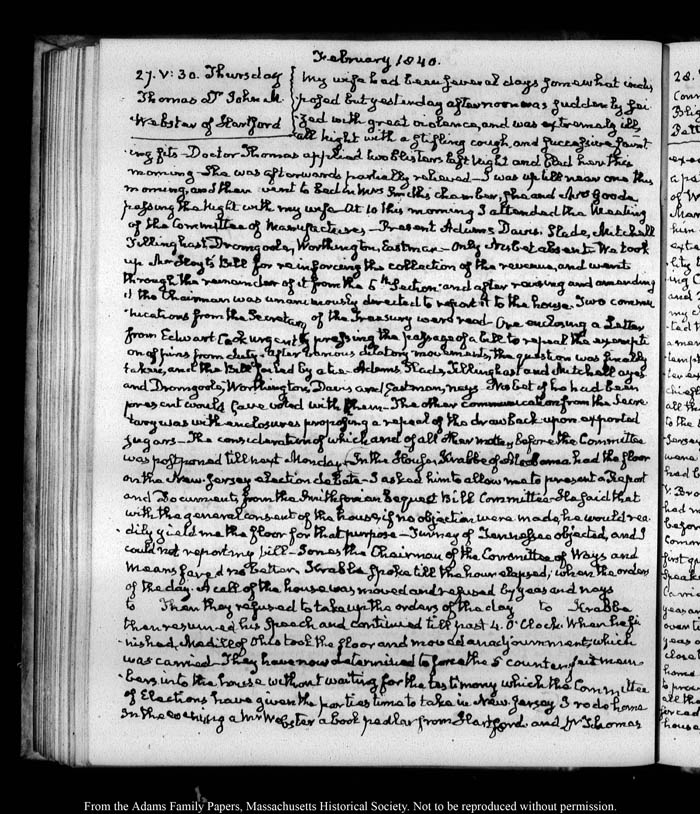 February 1840.
27. V: 30. Thursday
Thomas Dr John M
Webster of Hartford
My wife had been several days somewhat indis
posed but yesterday afternoon was suddenly sei
zed with great violence, and was extremely ill,
all night with a stifling cough, and successive faint
ing fits - Doctor Thomas applied two blisters last night and bled her this
morning - She was afterwards partially relieved - I was up till near one this
morning, and then went to bed in Mrs Smith's chamber, she and Mrs Goods
passing the night with my wife. At 10 this morning I attended the Meeting
of the Committee of Manufactures - Present Adams, Davis. Slade, Mitchell
Tillinghast, Dromgoole, Worthington, Eastman - Only Nisbet absent. We took
up Mr Hoyt's Bill for reinforcing the collection of the revenue, and went
through the remainder of it from the 5th Section - and after revising and amending
it the Chairman was unanimously directed to report it to the house. Two commu
nications from the Secretary of the Treasury were read - One enclosing a Letter
from Edward Cooking urgently pressing the passage of a bill to repeal the exempti
on of from duty - After various dilatory movements, the question was finally
taken, and the Bill failed by a tie - Adams, Slade, Tillinghast and Mitchell ayes
and Dromgoole, Worthington, Davis and Eastman, nays - Nisbet if he had been
present would have voted with them - The other communication from the Secre
tary was with enclosures proposing a repeal of the drawback upon exported
sugars - The consideration of which and of all other matters before the Committee
was postponed till next Monday. In the House, Krabbe of Alabama had the floor
on the New-Jersey election debate - I asked him to allow me to present a Report
and Documents, from the Smithsonian Bequest Bill Committee - He said that
with the general consent of the house, if no objection were made, he would rea
dily yield me the floor for that purpose - Turney of Tennessee objected, and I
could not report my bill - Jones the Chairman of the Committee of Ways and
Means fared no better. Krabbe spoke till the hour elapsed, when the orders
of the day. A call of the house was moved and refused by yeas and nays
to Then they refused to take up the orders of the day to Krabbe
then resumed his Speech and continued till past 4. O'Clock. When he fi
nished, Medill of Ohio took the floor and moved an adjournment, which
was carried - They have now determined to force the 5 counterfeit mem
bers into the house without waiting for the testimony which the Committee
of Elections have given the parties time to take in New Jersey I rode home
In the evening a Mr Webster a book pedlar from Hartford and Dr Thomas
From the Adams Family Papers, Massachusetts Historical Society. Not to be reproduced without permission.